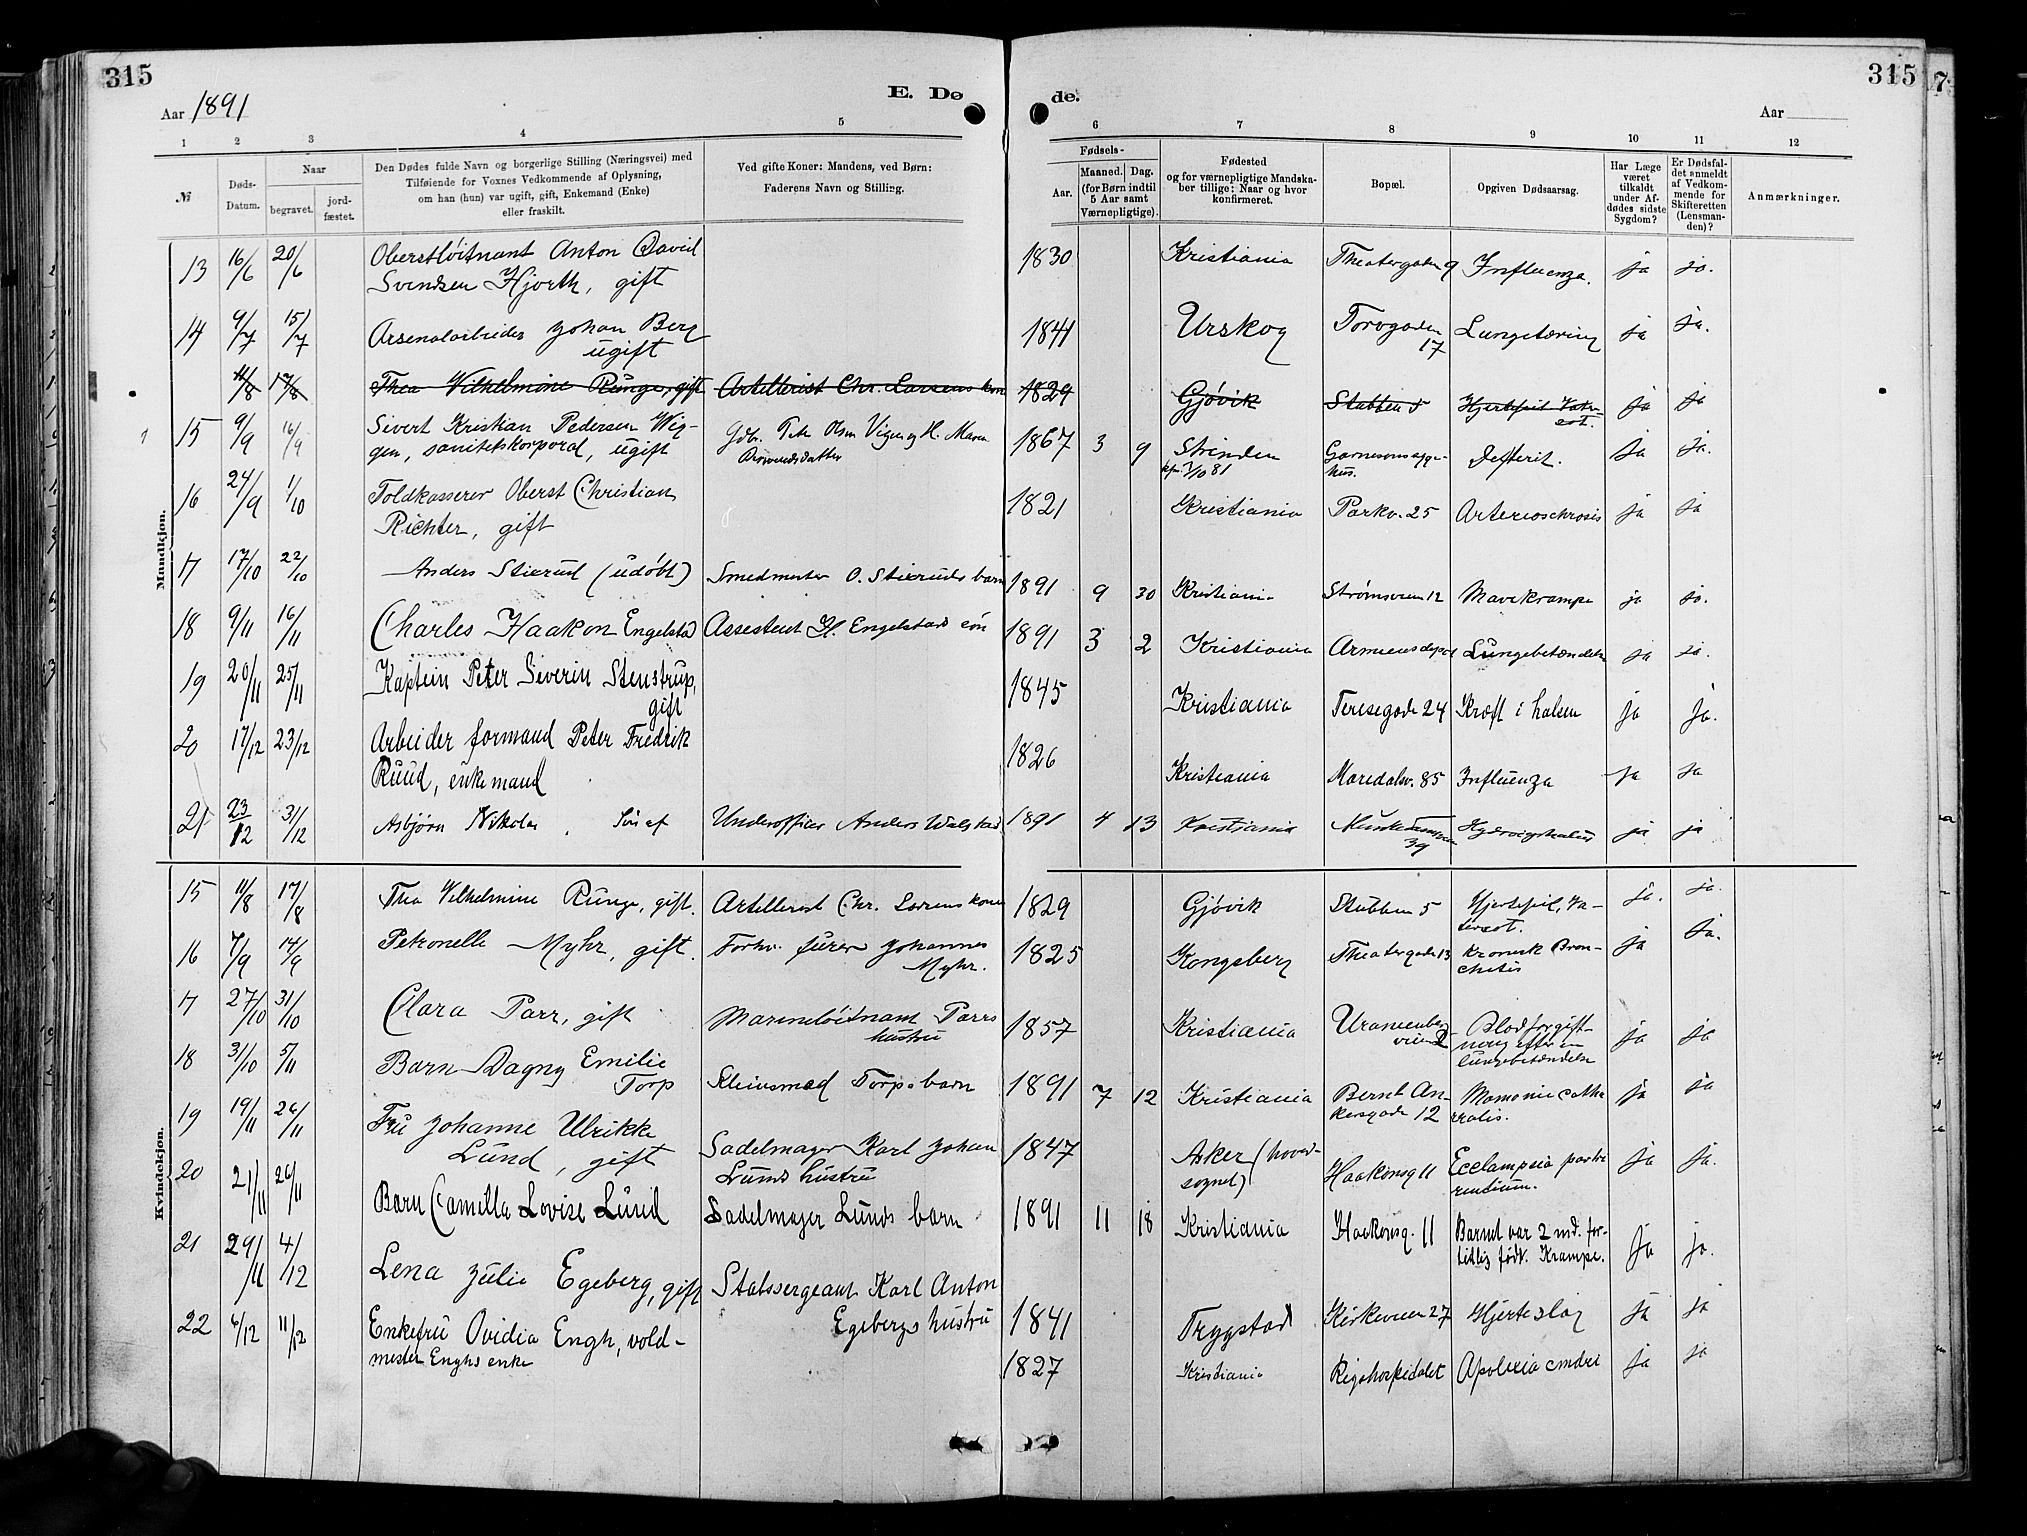 315
Aar 1891
E. Dø
de.
315
7
Aar
1 2 3 4 5 6 7 8 9 10 11 12
№
Døds-Datum.
Naar
begravet.
jord-fæstet.
Den Dødes fulde Navn og borgerlige Stilling (Næringsvei) med
Tilføiende for Voxnes Vedkommende af Oplysning,
om han (hun) var ugift, gift, Enkemand (Enke)
eller fraskilt.
Ved gifte Koner: Mandens, ved Børn:
Faderens Navn og Stilling.
Fødsels-
Aar.
Maaned. Dag.
(for Børn indtil
5 Aar samt
Værnepligtige).
Fødested
og for værnepligtige Mandska-
ber tillige: Naar og hvor
konfirmeret.
Bopæl.
Opgiven Dødsaarsag.
Har Læge
været
tilkaldt
under Af-
dødes sidste
Sygdom?
Er Dødsfal-
det anmeldt
af Vedkom-
mende for
Skifteretten
(Lensman-
den)?
Anmærkninger.
Mandkjøn.
13 16/6 20/6 Oberstløitnant Anton David 1830 Kristiania Theatergaden 9 Influenza. ja ja.
Svendsen Hjorth, gift
14 9/7 15/7 Arsenalarbeider Johan Berg 1841 Urskog Torvgaden Lungetæring ja ja.
ugift 17
11/8 17/8 Thea Vilhelmine Runge, gift Artillerist Chr. Larsens kone 1829 Gjøvik Stubben 5 Hjertefeil Vater- ja ja
sot.
15 9/9 16/9 Sivert Kristian Pedersen Wig- 1867 3 9 Strinden Garnisonssyge- Defterit. ja ja.
gen, sanitetskorporal, ugift hus.
16 24/9 1/10 Toldkasserer Oberst Christian 1821 Kristiania Parkv. 25 ja ja
Richter, gift
17 17/10 22/10 Anders Stierud (udøbt) Smedmester O. Stieruds barn 1891 9 30 Kristiania Strømsveien 12 Mavekrampe ja ja.
18 9/11 16/11 Charles Haakon Engelstad Assistent H. Engelstads søn 1891 3 2 Kristiania Lungebetændelse ja ja.
19 20/11 25/11 Kaptein Peter Severin Stenstrup, 1845 Kristiania Teresegade 24 Kræft i halsen ja ja.
gift
20 17/12 23/12 Arbeider formand Peter Fredrik 1826 Kristiania Maridalsv. 85 Influenza ja ja
Ruud, enkemand
21 23/12 31/12 Asbjørn Nikolai, Søn af Underofficer Anders 1891 4 13 Kristiania ja ja
39
Kvindekjøn.
15 11/8 17/8 Thea Vilhelmine Runge, gift. Artillerist Chr. Larsens kone 1829 Gjøvik Stubben 5 Hjertefeil, Va- ja. ja.
tersot.
16 7/9 14/9 Petronelle Myhr, gift. Forhv. furer Johannes 1825 Kongsberg Theatergade 13 Kronisk Bron- ja ja.
Myhr. chitis
17 27/10 31/10 Clara Parr, gift Marineløitnant Parrs 1857 Kristiania Uranienborg- Blodforgift- ja ja
hustru veien 2 ning efter en
lungebetændelse
18 31/10 5/11 Barn Dagny Emilie Kleinsmed Torps barn 1891 7 12 Kristiania Bernt An- ja ja
Torp kersgade 12
19 19/11 26/11 Fru Johanne Ulrikke Sadelmager Karl Johan 1847 Asker (hoved- Haakonsg 11 Eclampsia ja ja.
Lund, gift Lunds hustru sognet)
20 21/11 26/11 Barn Camilla Lovise Lund Sadelmager Lunds barn 1891 11 18 Kristiania Haakonsg. 11 Barnet var 2 md. for- ja ja.
tidlig født. Krampe.
21 29/11 4/12 Lena Julie Egeberg, gift Statssergeant Karl Anton
Egebergs hustru 1841 Trygstad Kirkeveien 27 Hjerteslag ja ja
22 6/12 11/12 Enkefru Ovidia Engh, vold-
mester Enghs enke 1827 Kristiania Rigshospitalet ja ja